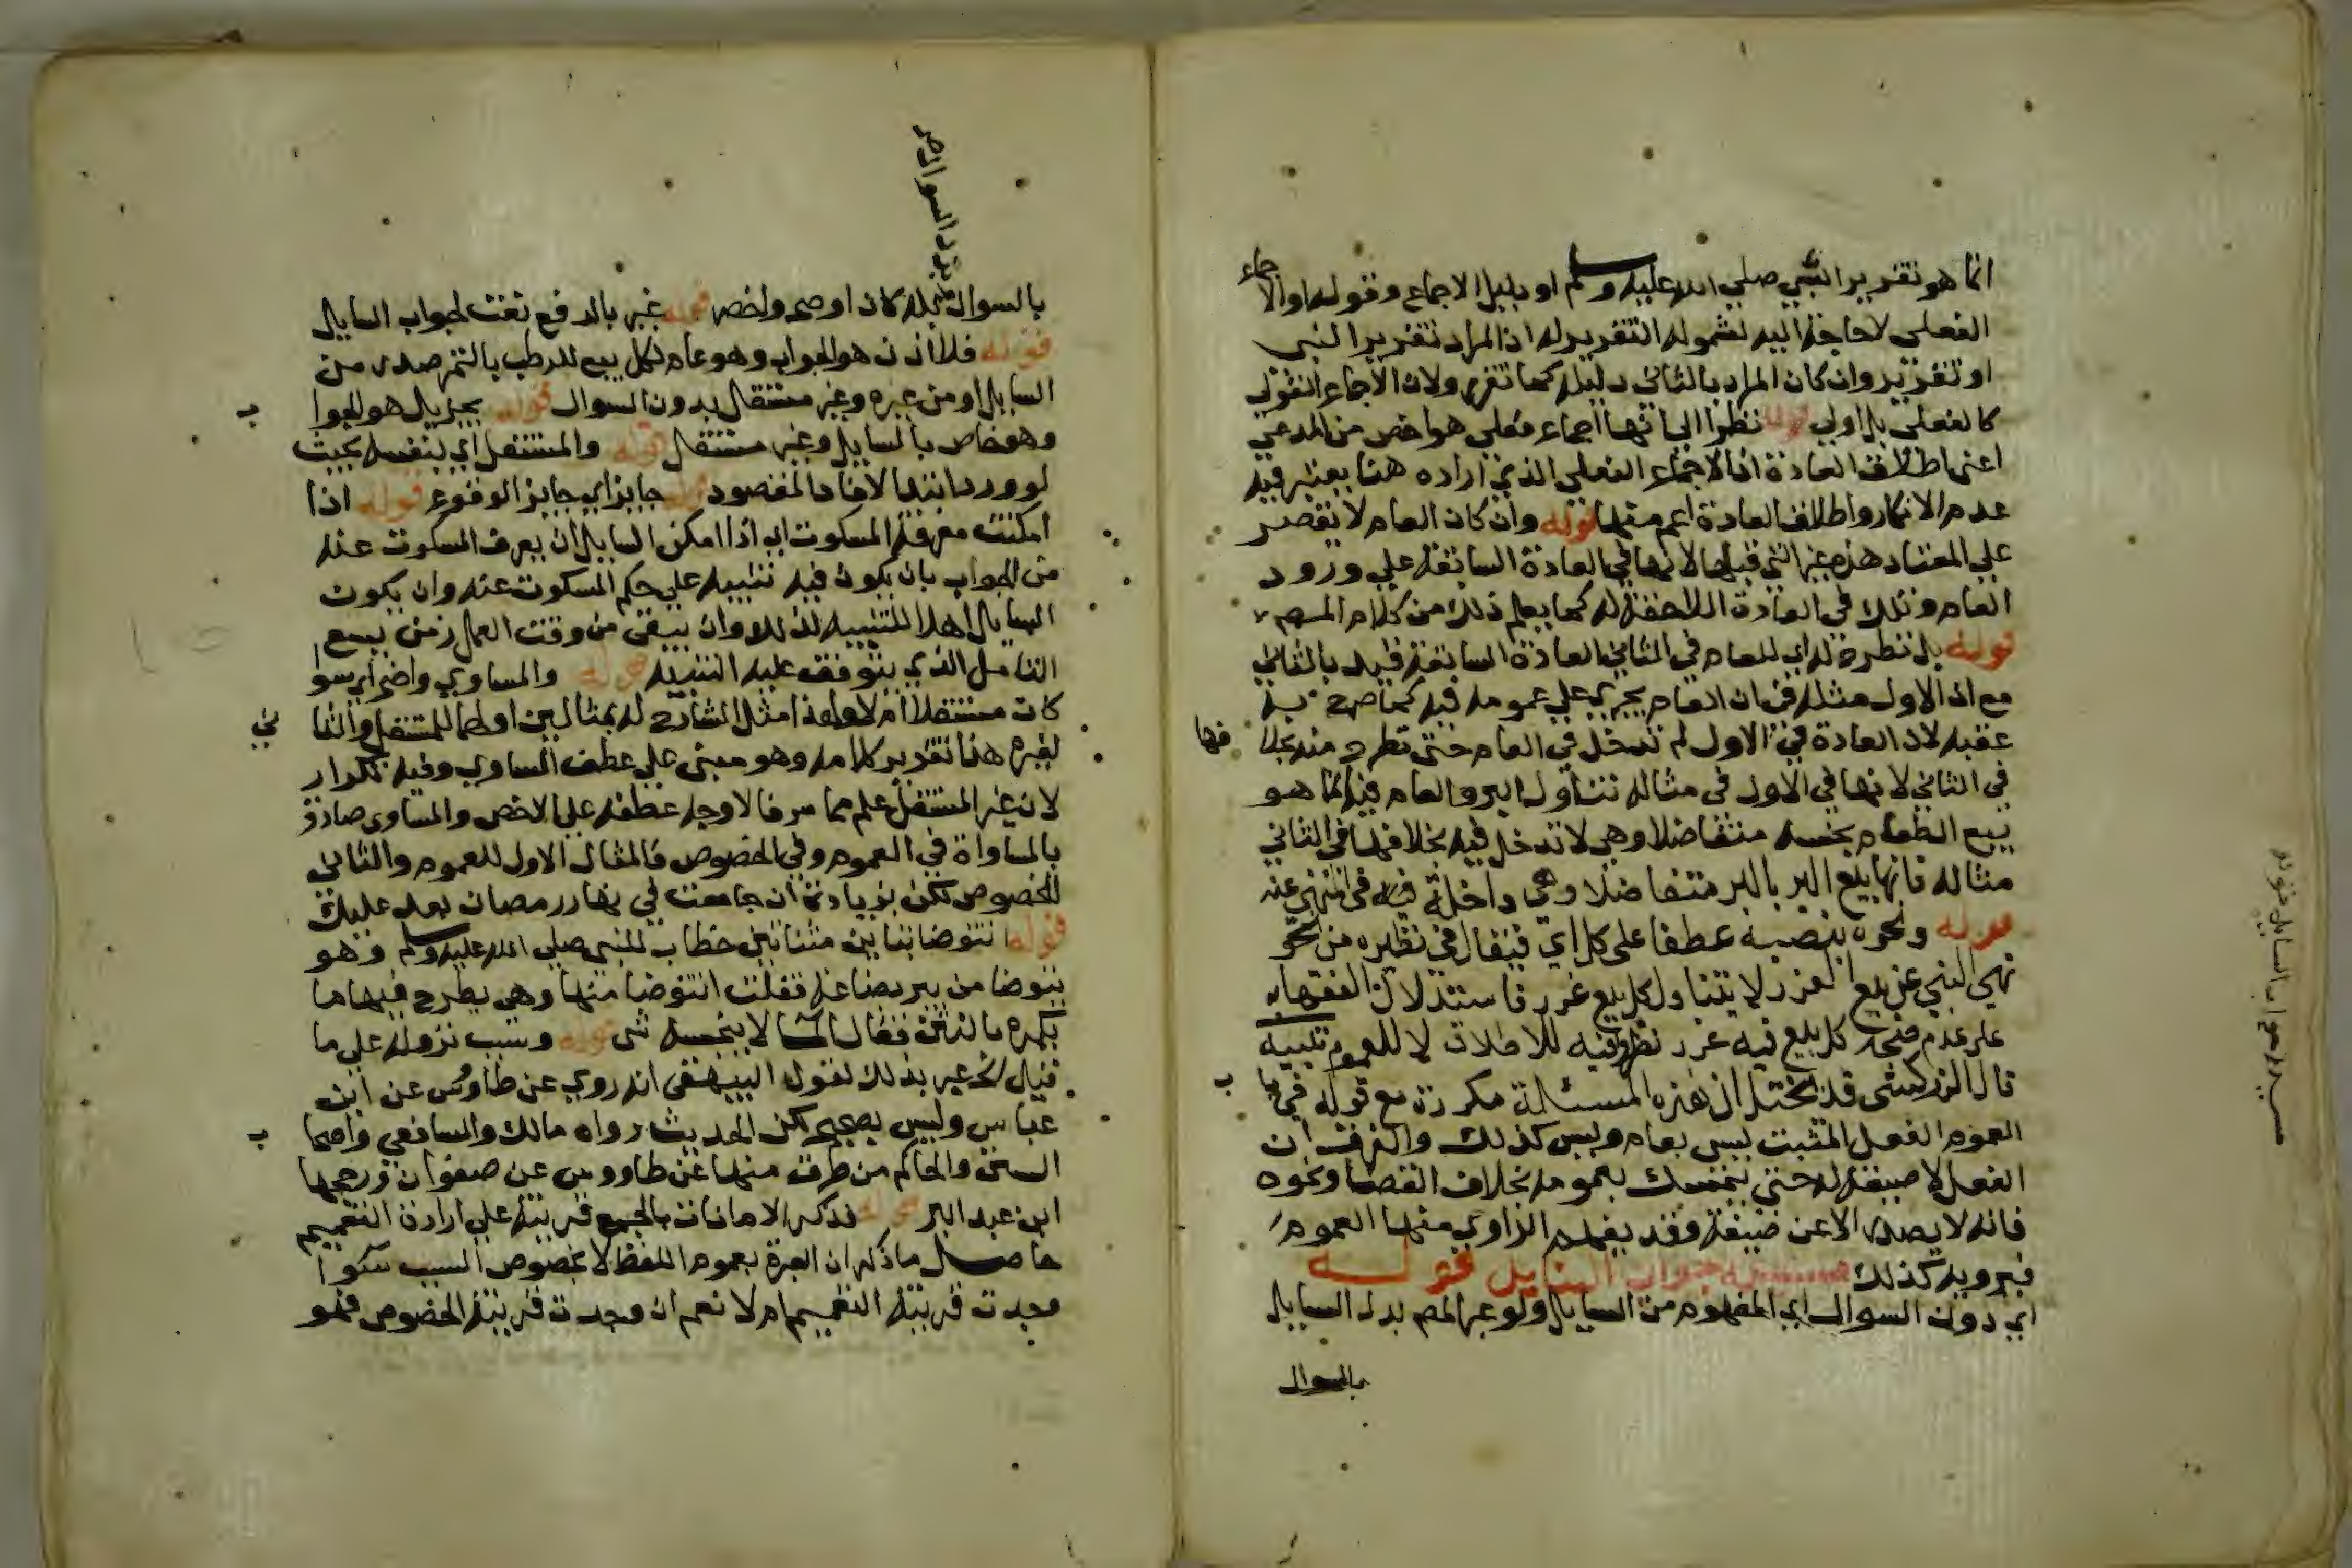 انما هو تقرير النبي صلي الله عليه وسلم او دليل الاجماع وقوله او الاجماع
الفعلي لا حاجة اليه لشموله التقرير له اذ المراد تقرير النبي
او تقرير وان كان المراد بالثاني دليله كما تقرر ولان الاجماع القولي
كالفعلي بل اولي قوله نظرا الي انها اجماع فعلي هو اخص من المدعي
اعني اطلاق العادة اذ الاجماع الفعلي الذي اراده هنا يعتبر فيه
عدم الانكار واطلاق العادة اعم منها قوله وان كان العام لا يقصر
علي المعتاد هذه غير التي قبلها لانها في العادة السابقة علي ورود
العام وتلك في العادة اللاحقة له كما يعلم ذلك من كلامه
قوله بل تطرح له اي للعام في الثاني العادة السابقة قيد بالثاني
مع ان الاول مثله في ان العام يجري علي عمومه فيه كما صرح به
عقبه لان العادة في الاول لم تدخل في العام حتي تطرح منه بخلافها
في الثاني لانها في الاول في مثاله تناول البر والعام فيه انما هو
بيع الطعام بجنسه متفاضلا وهي لا تدخل فيه بخلافها في الثاني
مثاله فانها بيع البر بالبر متفاضلا وهي داخلة فيه في المنهي عنه
قوله ونحوه بنصبه عطفا علي كل اي فيقال في نظيره من نحو
نهي النبي عن بيع الغرر لا يتناول كل بيع غرر فاستدلال الفقهاء به
علي عدم صحة كل بيع فيه غرر نظر فيه للاطلاق لا للعموم تنبيه
قال الزركشي قد يختيل ان هذه المسئلة مكررة مع قوله فيما ب
العموم الفعل المثبت ليس بعام وليس كذلك والفرق ان
الفعل لا صيغة له حتي يتمسك بعمومه بخلاف القضا ونحوه
فانه لا يصدر الا عن صيغة وقد يفهم الراوي منها العموم
فيرويه كذلك مسئلة جواب السايل قوله
اي دون السوال اي المفهوم من السايل ولو عبر المصر بدل السايل
بالسوال
بالسوال كان اوضح واخصر قوله غير بالرفع نعت لجواب السايل
قوله فلا اذن هو الجواب وهو عام لكل بيع للرطب بالتمر صدر من
السايل او من غيره وغير مستقل بدون السوال قوله يجزيك هو الجواب
وهو خاص بالسايل وغير مستقل قوله والمستقل اي بنفسه بحيث
لو ورد ابتدا لافاد المقصود قوله جايز اي جايز الوقوع قوله اذا
امكنت معرفة المسكوت اي اذا امكن السايل ان يعرف المسكوت عنه
من الجواب بان يكون فيه تنبيه علي حكم المسكوت عنه وان يكون
السايل اهلا للتنبيه لذلك وان يبقي من وقت العمل زمن يسع
التامل الذي يتوقف عليه التنبيه قوله والمساوي واضح اي سوا
كان مستقلا ام لا ولهذا مثل الشارح له بمثالين اولهما للمستقل والثاني
لغيره هذا تقرير كلامه وهو مبني علي عطف المساوي وفيه تكرار
لان غير المستقل علم مما مر فالاوجه عطفه علي الاخص والمساوي صادق
بالمساواة في العموم وفي الخصوص فالمثال الاول للعموم والثاني
للخصوص لكن بزيادة ان جامعت في نهار رمضان بعد عليك
قوله اتتوضا بتاين مثناتين خطاب للنبي صلي الله عليه وسلم وهو
يتوضا من بير بضاعة فقلت اتتوضا منها وهي يطرح فيها ما
يكره بالنتن فقال الما لا ينجسه شي قوله وسبب نزوله علي ما
قيل الخ عبر بذلك لقول البيهقي انه روي عن طاوس عن ابن
عباس وليس بصحيح لكن الحديث رواه مالك والشافعي واصحاب
السنن والحاكم من طرق منها عن طاووس عن صفوان ورجحها
ابن عبد البر قوله فذكر الامانات بالجمع قرينة علي ارادة التعميم
حاصل ما ذكر ان العبرة بعموم اللفظ لا بخصوص السبب سوا
وجدت قرينة التعميم ام لا نعم ان وجدت قرينة الخصوص فهو